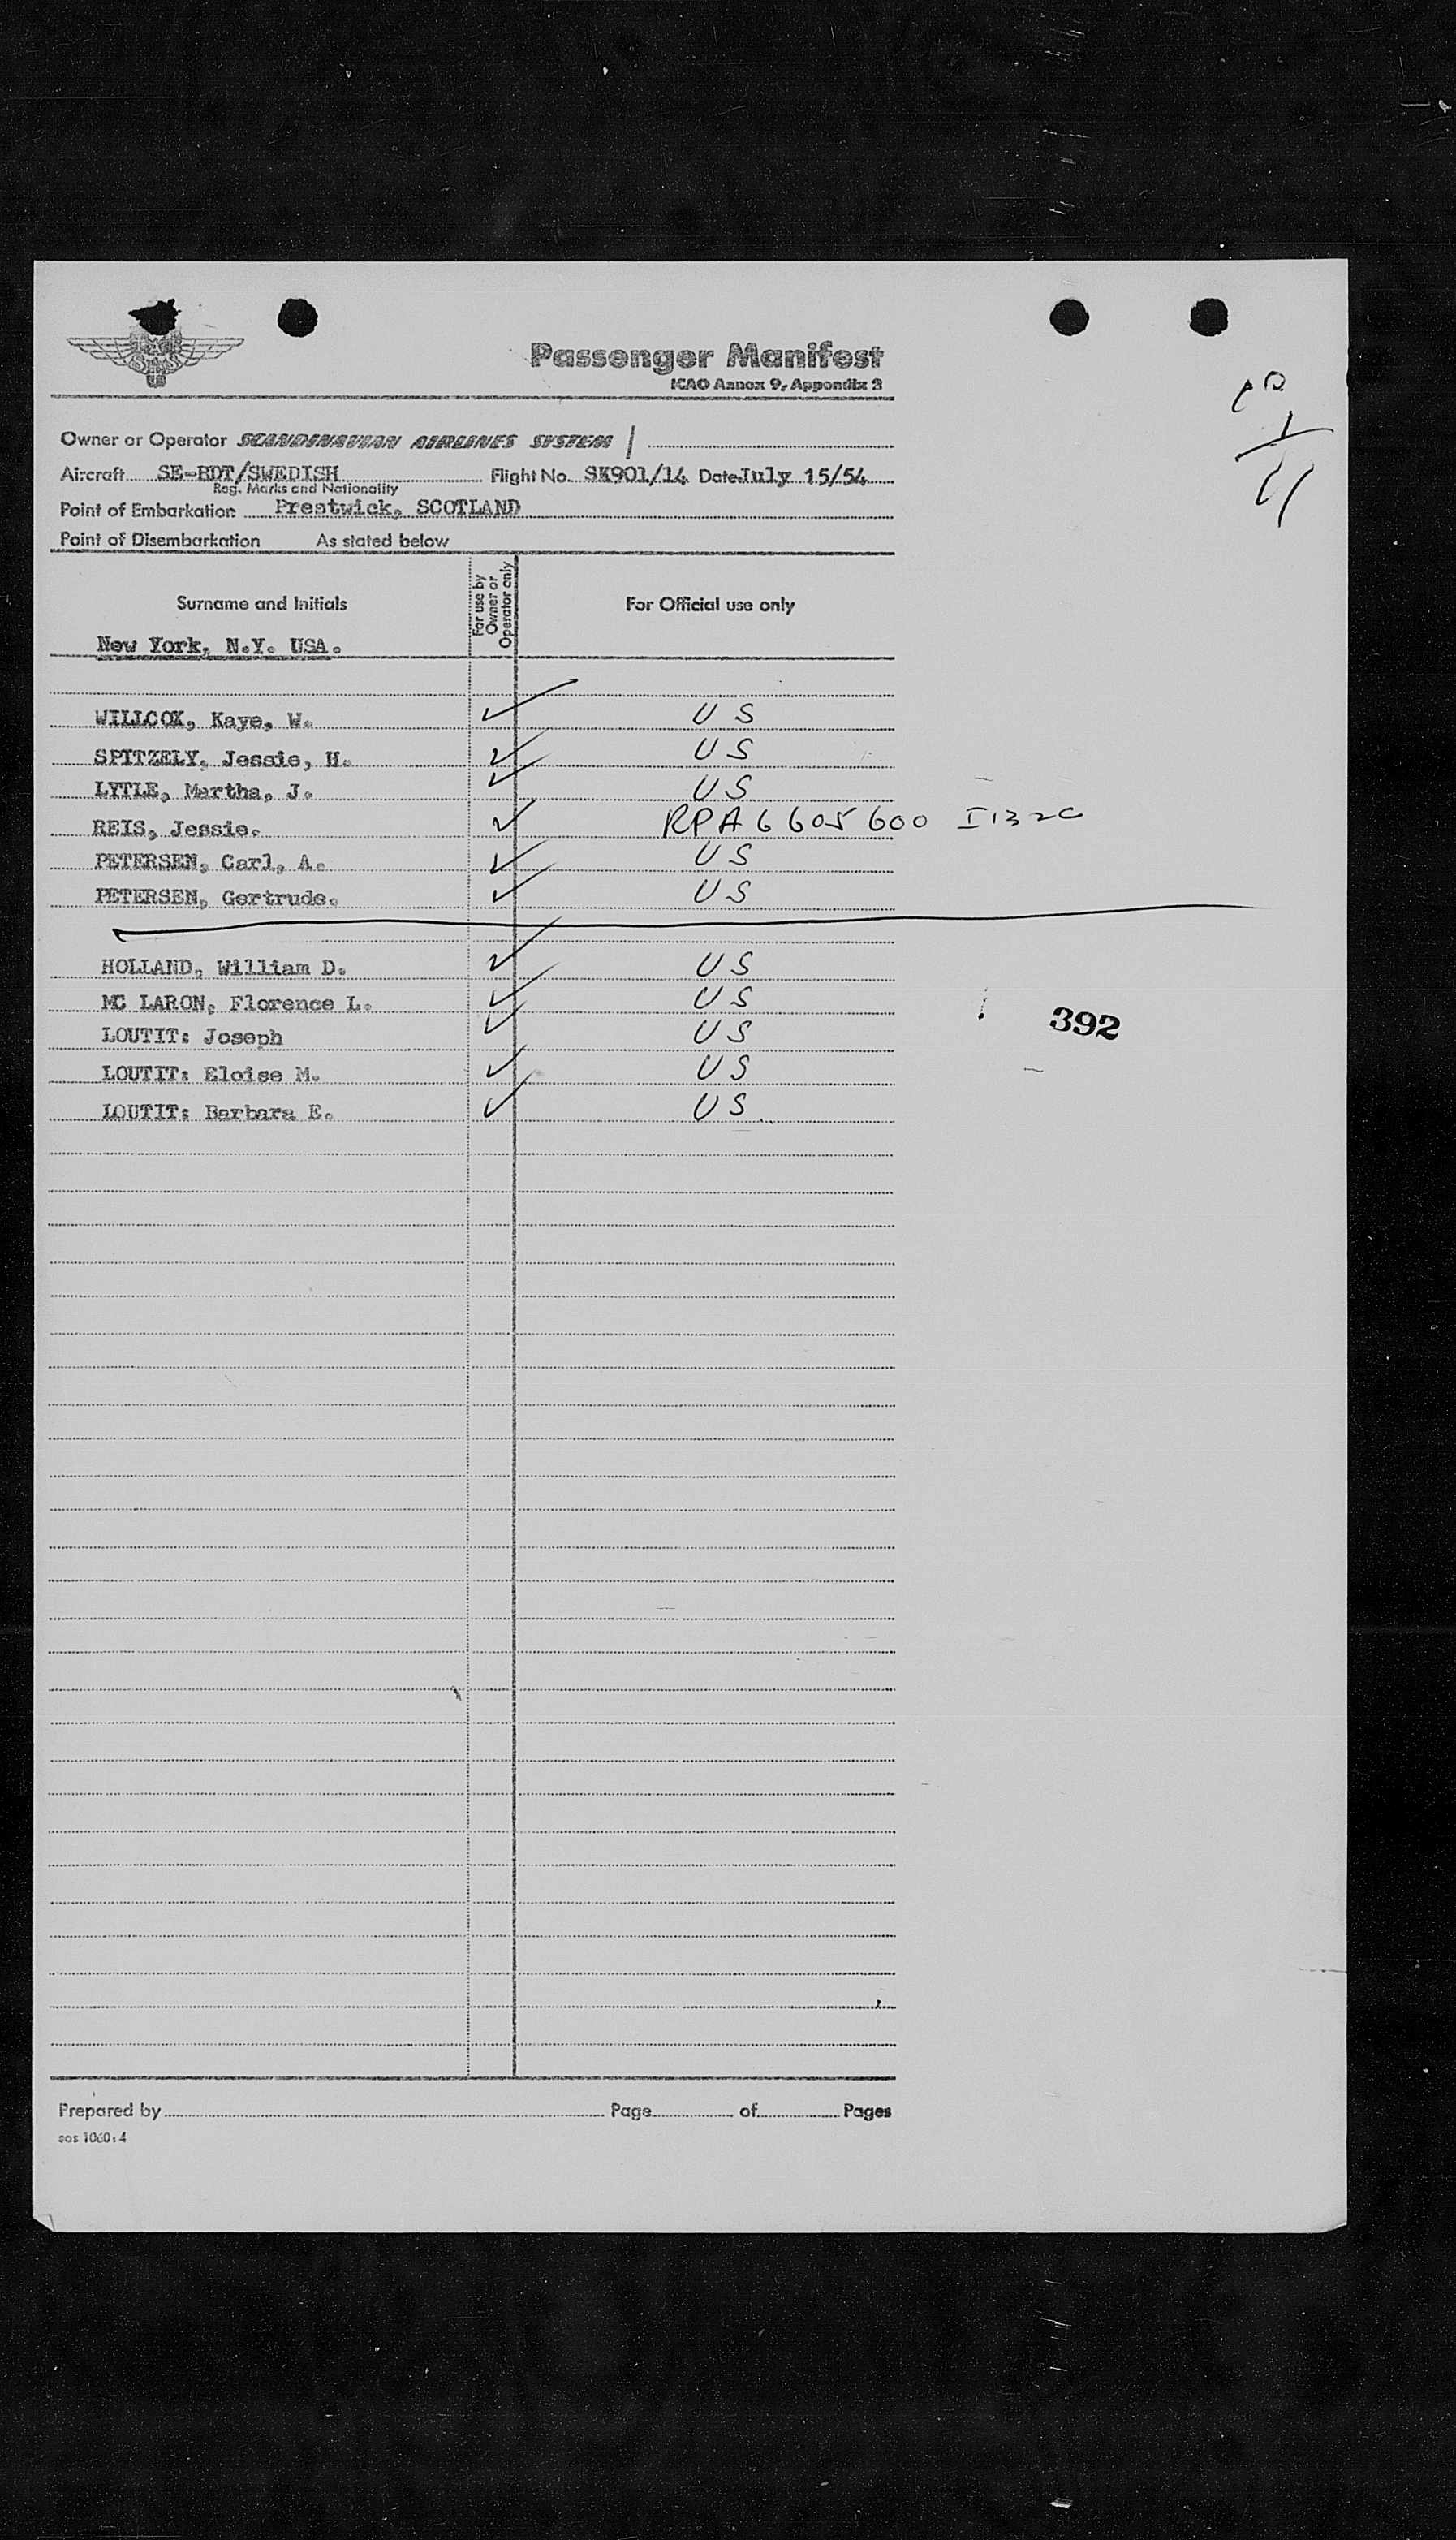 SAS
Passenger Manifest
ICAO Annex 9, Appendix 2
Owner or Operator SCANDINAVIAN AIRLINES SYSTEM /
Aircraft SE-BDT/SWEDISH Flight No. SK901/14 Date July 15/54
Reg. Marks and Nationality
Point of Embarkation Prestwick, SCOTLAND
Point of Disembarkation As stated below
Surname and Initials For use by Owner or Operator only For Official use only
New York, N.Y. USA.
WILLCOX, Kaye, W. ✓ US
SPITZELY, Jessie, H. ✓ US
LYTLE, Martha, J. ✓ US
REIS, Jessie. ✓ RPA 6605600 I132C
PETERSEN, Carl, A. ✓ US
PETERSEN, Gertrude. ✓ US
HOLLAND, William D. ✓ US
MC LARON, Florence L. ✓ US
392
LOUTIT: Joseph ✓ US
LOUTIT: Eloise M. ✓ US
LOUTIT: Barbara E. ✓ US
Prepared by Page of Pages
sas 1060:4